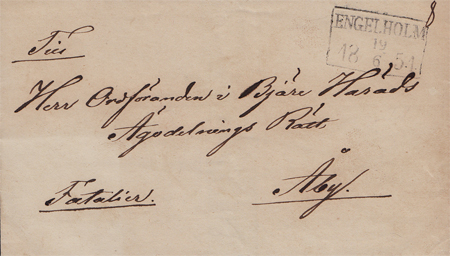 8
ENGELHOLM
19
18 6 54
Till
Herr Ordföranden i Bjäre Härads
Ägodelnings Rätt
Åby.
Fatalier.